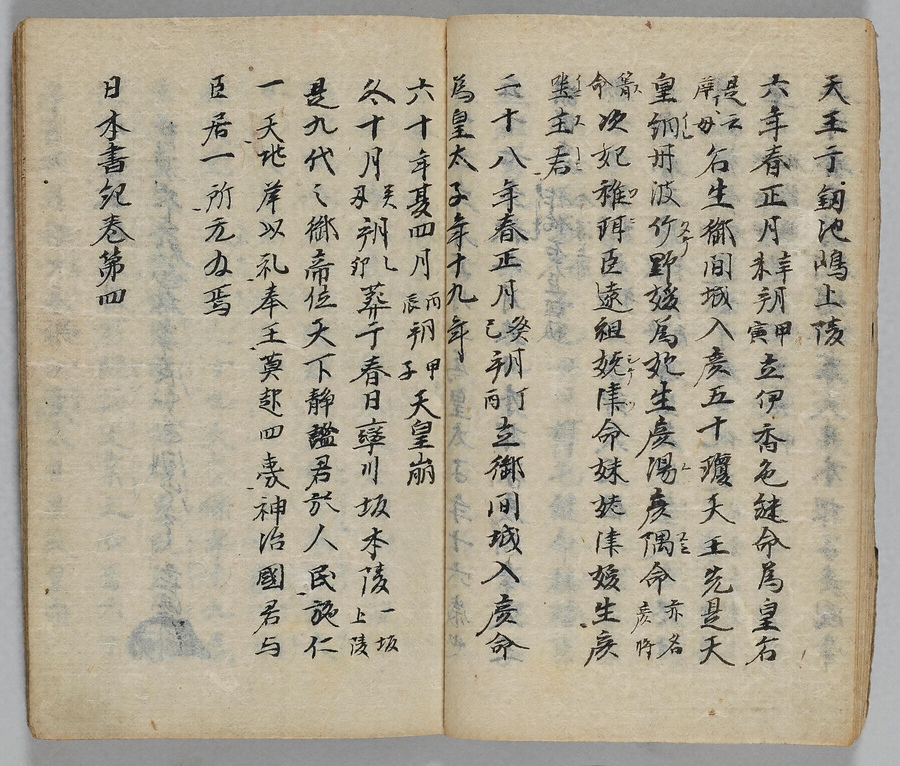 天王于釼池嶋上陵
六年春正月辛未朔甲寅立伊香色謎命為皇后
是云庶母后生御間城入彦五十瓊天王先是天
皇納丹波竹野媛為妃生彦湯彦隅命亦名彦将
簀命次妃稚珥臣遠祖姥津命妹姥津媛生彦
坐主君
二十八年春正月癸巳朔丁酉立御間城入彦命
為皇太子年十九年
六十年夏四月丙辰朔甲子天皇崩
冬十月癸丑朔乙卯葬于春日率川坂本陵一坂上陵
是九代之御斎位天下静謐君於人民施仁
一天地岸以礼奉王莫起四夷神治國君与
臣居一所无為焉
日本書紀巻第四